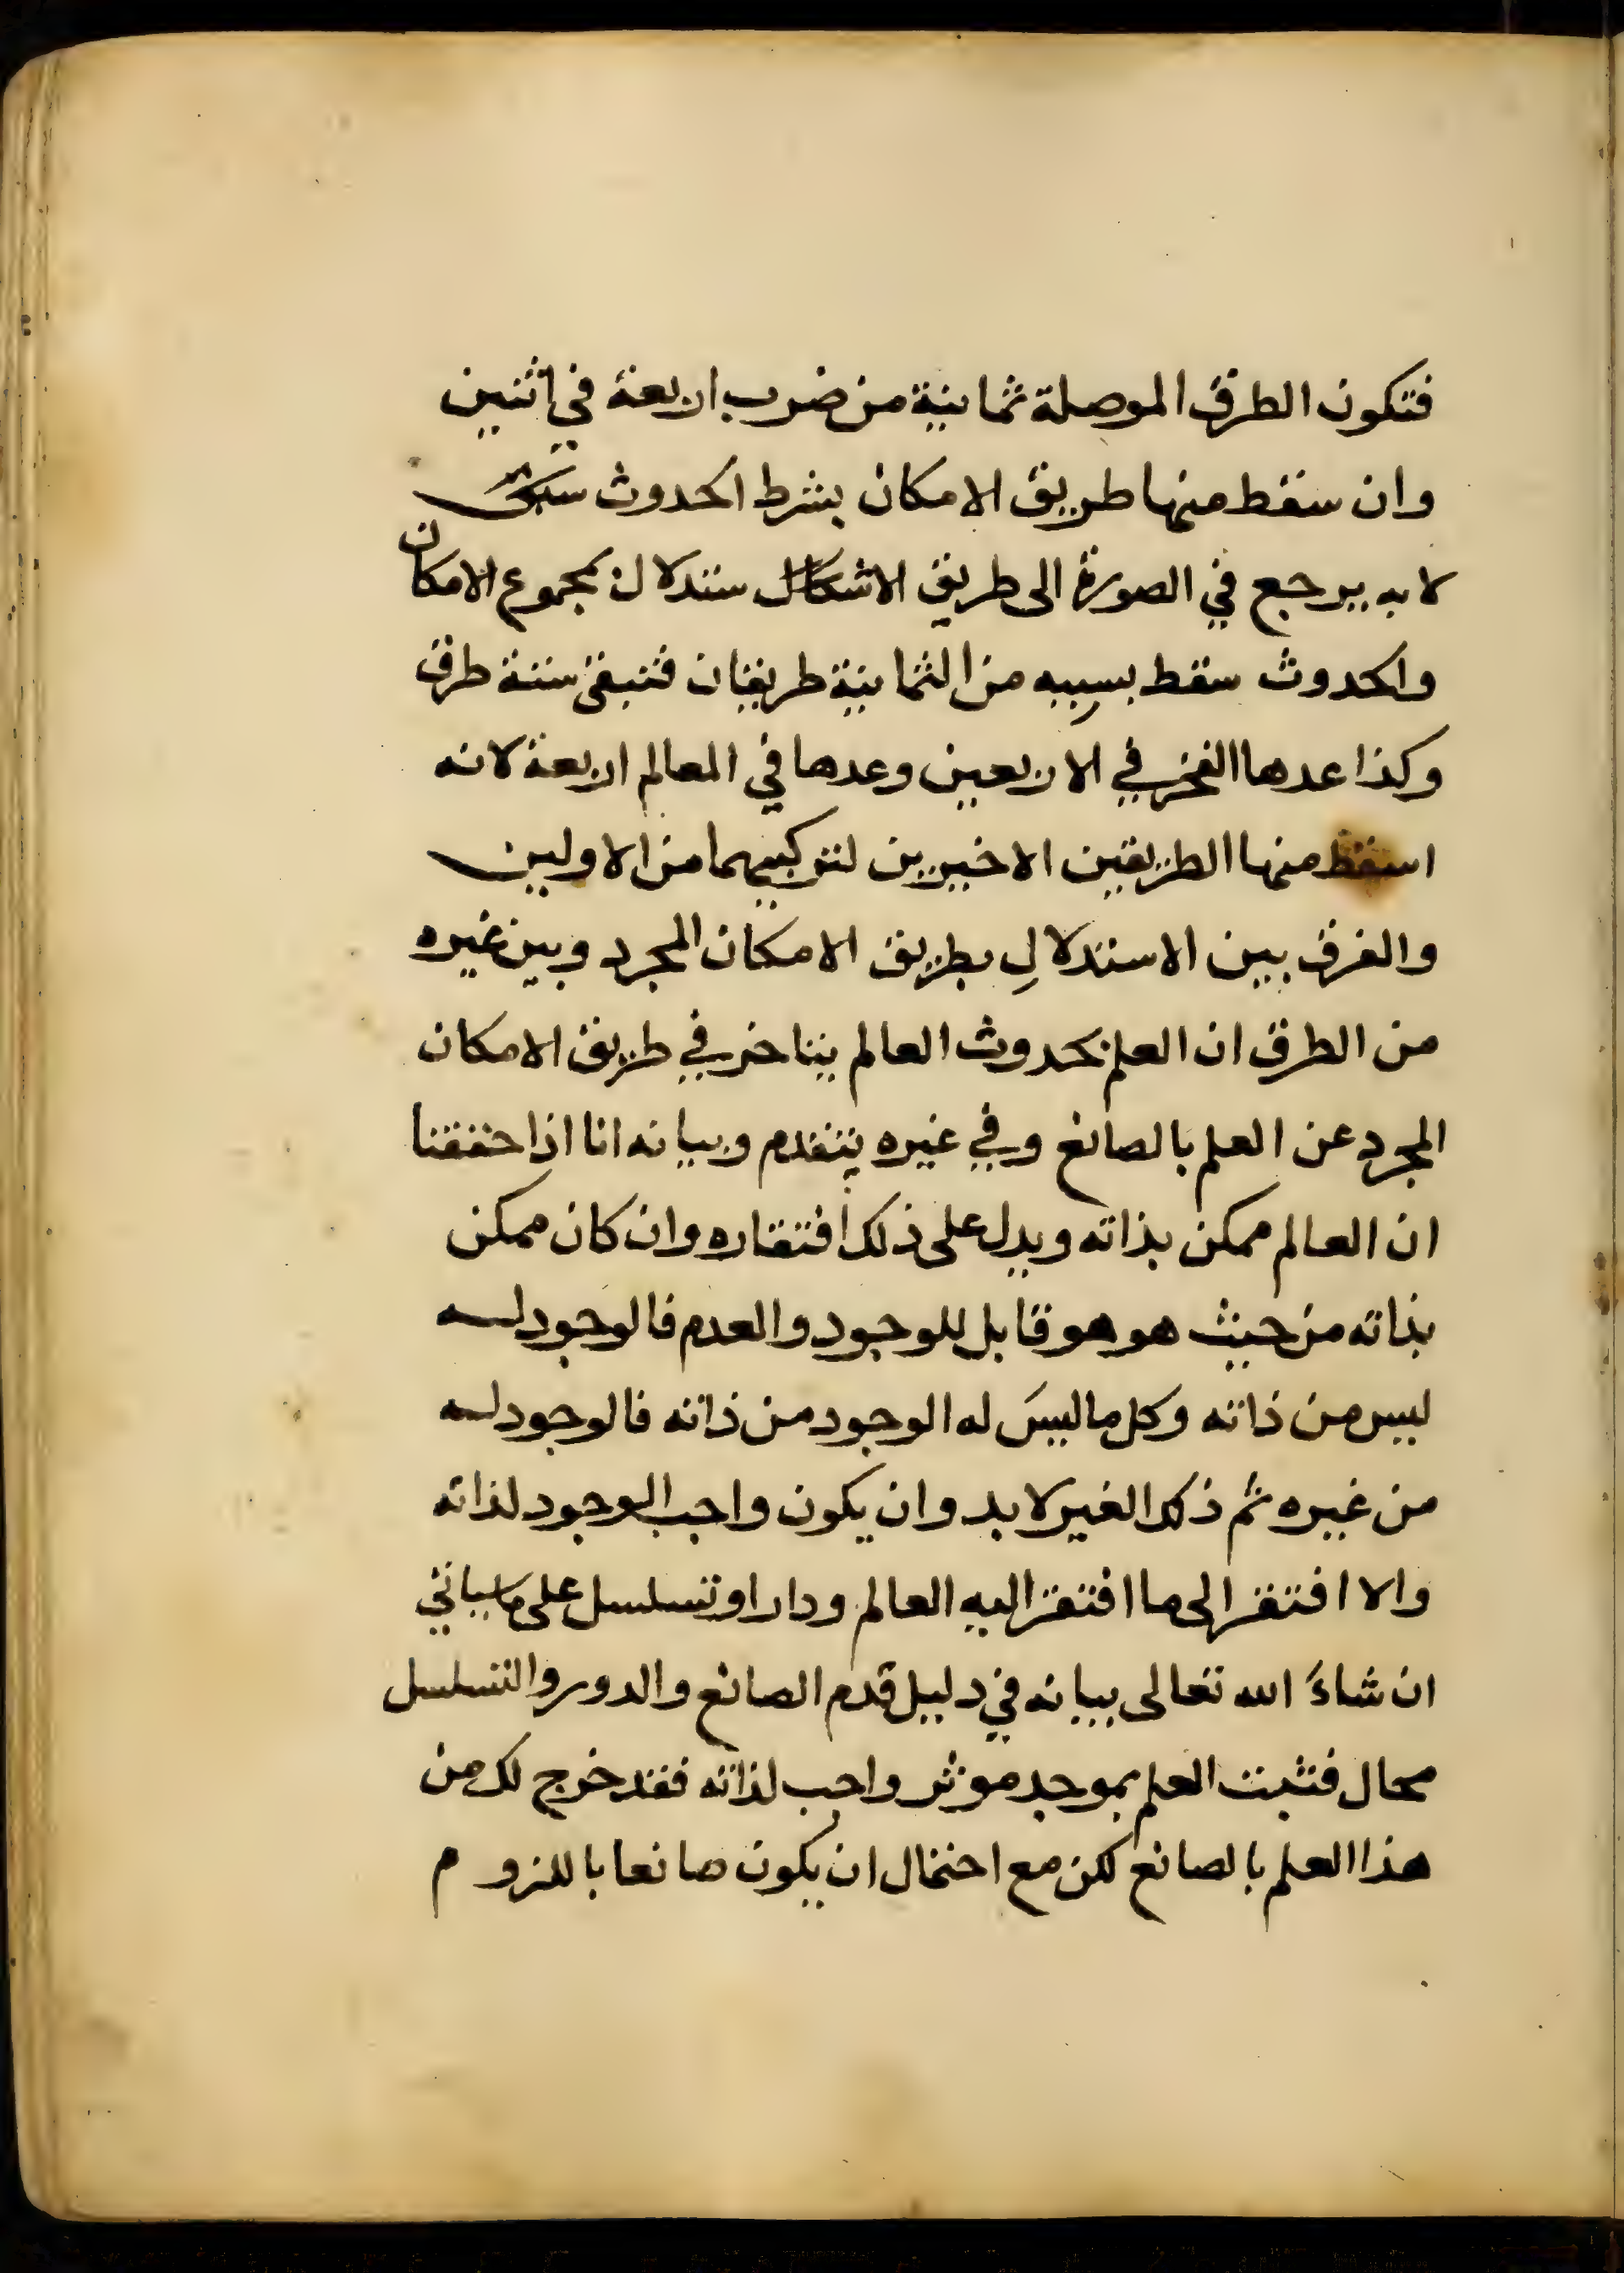 فتكون الطرق الموصلة ثمانية من ضرب اربعة في اثنين
وان سقط منها طريق الامكان بشرط الحدوث
لانه يرجع في الصورة الى طريق سندلال بمجموع الامكان
والحدوث سقط بسببه من الثمانية طريقان فتبقى ستة طرق
وكذا عدها الفخر في الاربعين وعدها في المعالم اربعة لانه
اسقط منها الطريقين الاخيرين لتركيبهما من الاولين
والفرق بين الاستدلالِ بطريق الامكان المجرد وبين غيره
من الطرق ان العلم بحدوث العالم يتاخر في طريق الامكان
المجرد عن العلم بالصانع وفي غيره يتقدم وبيانه انا اذا حققنا
ان العالم ممكن بذاته ويدل على ذلك افتقاره وان كان ممكن
بذاته من حيث هو هو قابل للوجود والعدم فالوجود له
ليس من ذاته وكل ما ليسَ له الوجود من ذاته فالوجود له
من غيره ثم ذلك الغير لا بد وان يكون واجب الوجود لذاته
والا افتقر الى ما افتقر اليه العالم ودار او تسلسل على ما سياتي
ان شاءَ الله تعالى بيانه في دليل قدم الصانع والدور والتسلسل
محال فثبت العلم بموجد موثر واجب لذاته فقد خرج لك من
هذا العلم بالصانع لكن مع احتمال ان يكون صانعا باللزوم